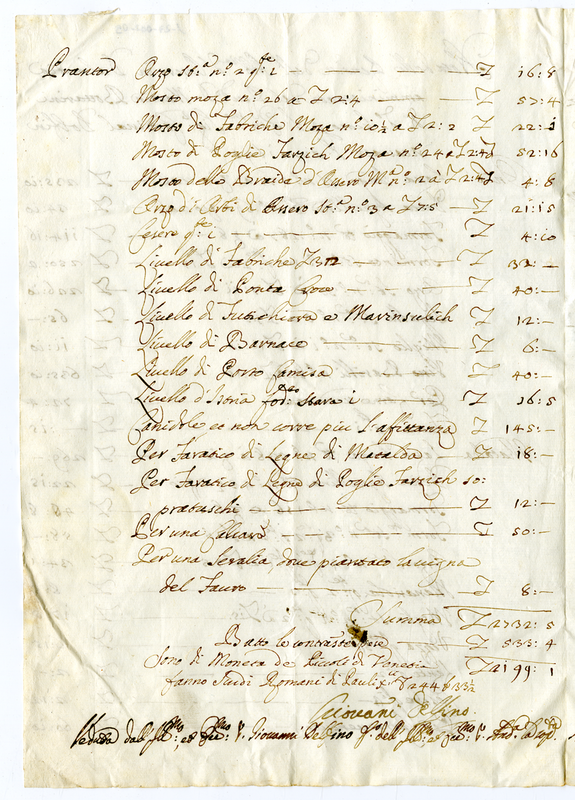 Prantor Orzo St:a n:o 2 q:te i — Z 16:8
Mosto moza n:o 26 a Z 2:4 — Z 57:4
Mosto di Fabriche Moza n:o 10½ a Z 2:2 Z 22:1
Mosto di Poglie Tarzich Moza n:o 24 a Z 2:4 Z 52:16
Mosto della Braida d'Ossero M:a n:o 2 a Z 2:4 Z 4:8
Orzo di Arbi di Ossero St:a n:o 3 a Z 7:5 — Z 21:15
q:te i — Z 4:10
Livello di Fabriche — Z 32:—
Livello di Ponta Croce — Z 40:—
Livello di e Marinsulich Z 12:—
Livello di Barnace — Z 6:—
Livello di Porto — Z 40:—
Livello d'Istria Stara i — Z 16:5
e non corre piu l'affittanza Z 145:—
Per Taratico di Legne di Matalda — Z 18:—
Per Taratico di Legne di Poglie Tarzich so:
prabaschi — Z 12:—
Per una — Z 50:—
Per una Seralia, dove piantato la uigna
del Tauro — Z 8:—
Summa Z 2732:5
Batto le contrascritte spese — Z 533:4
Sono di Moneta de Piccoli di Venezia Z 2199:1
fanno Scudi Romani di Pauli X 244
Giovani Delfino.
Veduta dall Ill:mo et Ecc:mo S. Giovanni Delfino q. dell' Ill:mo et Ecc:mo S.